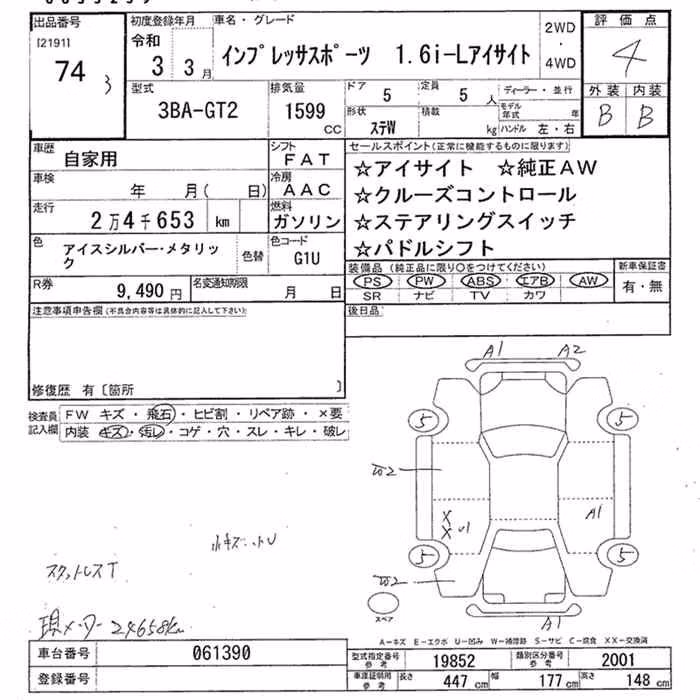 出品番号
[2191]
74 3
初度登録年月
令和
3 3月
車名・グレード
インプレッサスポーツ 1.6i-Lアイサイト
2WD
・
4WD
評価点
4
外装 内装
B B
型式
3BA-GT2
排気量
1599
CC
ドア
5
定員
5 人
形状
ステW
積載
kg
ディーラー・並行
モデル年式 年
ハンドル 左・右
車歴
自家用
シフト
FAT
車検
年 月( 日)
冷房
AAC
走行
2万4千653 km
燃料
ガソリン
色
アイスシルバー・メタリッ
ク
色替
色コード
G1U
R券
9,490 円
名変通知期限
月 日
セールスポイント(正常に機能するものに限ります)
☆アイサイト ☆純正AW
☆クルーズコントロール
☆ステアリングスイッチ
☆パドルシフト
装備品 (純正品に限り○をつけてください)
PS PW ABS エアB AW
SR ナビ TV カワ
新車保証書
有・無
後日品
注意事項申告欄(不具合内容等は具体的に記入して下さい)
修復歴 有〔箇所 〕
検査員
記入欄
FW キズ・飛石・ヒビ割・リペア跡・×要
内装 キズ・汚レ・コゲ・穴・スレ・キレ・破レ
A1 A2
5 5
W2
X
X U1
A1
5 5
W2
A1
スペア
スタットレスT
現メーター24658km
A-キズ E-エクボ U-凹み W-補修跡 S-サビ C-腐食 XX-交換済
車台番号 061390
登録番号
型式指定番号
参考
19852
類別区分番号
参考
2001
車庫証明用
参考
長さ 447 cm 幅 177 cm 高さ 148 cm